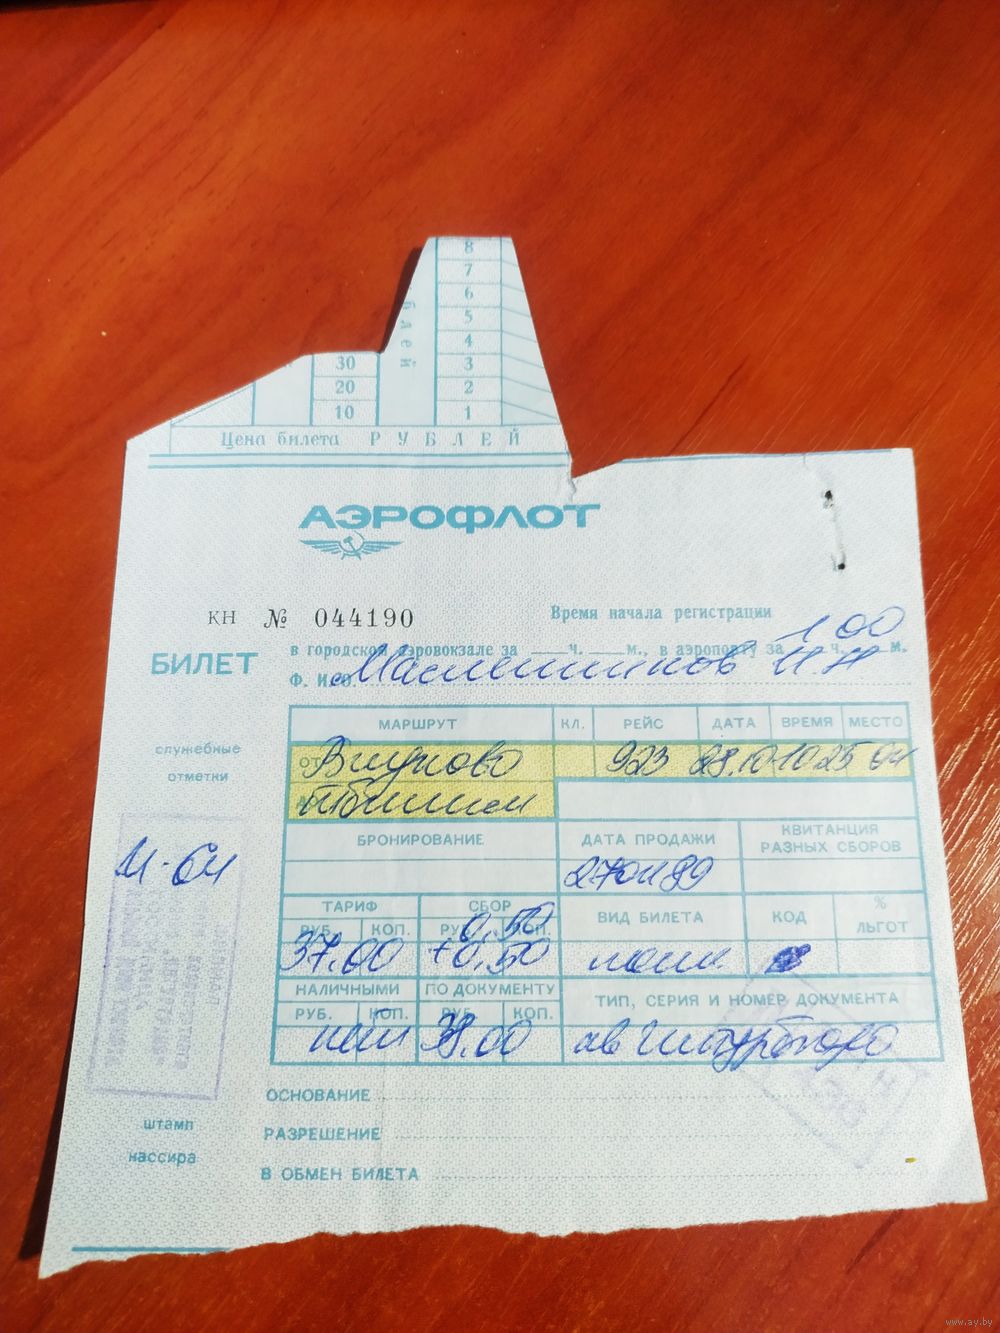 8
7
6
5
4
30 3
20 2
10 1
блей
Цена билета РУБЛЕЙ
АЭРОФЛОТ
КН № 044190
Время начала регистрации
в городском аэровокзале за ч. м., в аэропорту за 1 00 ч. м.
БИЛЕТ
Ф. И. О. Масленников
служебные
отметки
МАРШРУТ КЛ. РЕЙС ДАТА ВРЕМЯ МЕСТО
ОТ Внуково 923 28.10 1025
ДО Тбилиси
БРОНИРОВАНИЕ ДАТА ПРОДАЖИ КВИТАНЦИЯ
РАЗНЫХ СБОРОВ
М-64
ТАРИФ СБОР ВИД БИЛЕТА КОД % ЛЬГОТ
РУБ. КОП. РУБ. КОП.
0,50
37.00 +0,50
НАЛИЧНЫМИ ПО ДОКУМЕНТУ ТИП, СЕРИЯ И НОМЕР ДОКУМЕНТА
РУБ. КОП. РУБ. КОП.
38.00
ОСНОВАНИЕ
РАЗРЕШЕНИЕ
В ОБМЕН БИЛЕТА
штамп
кассира
www.ay.by